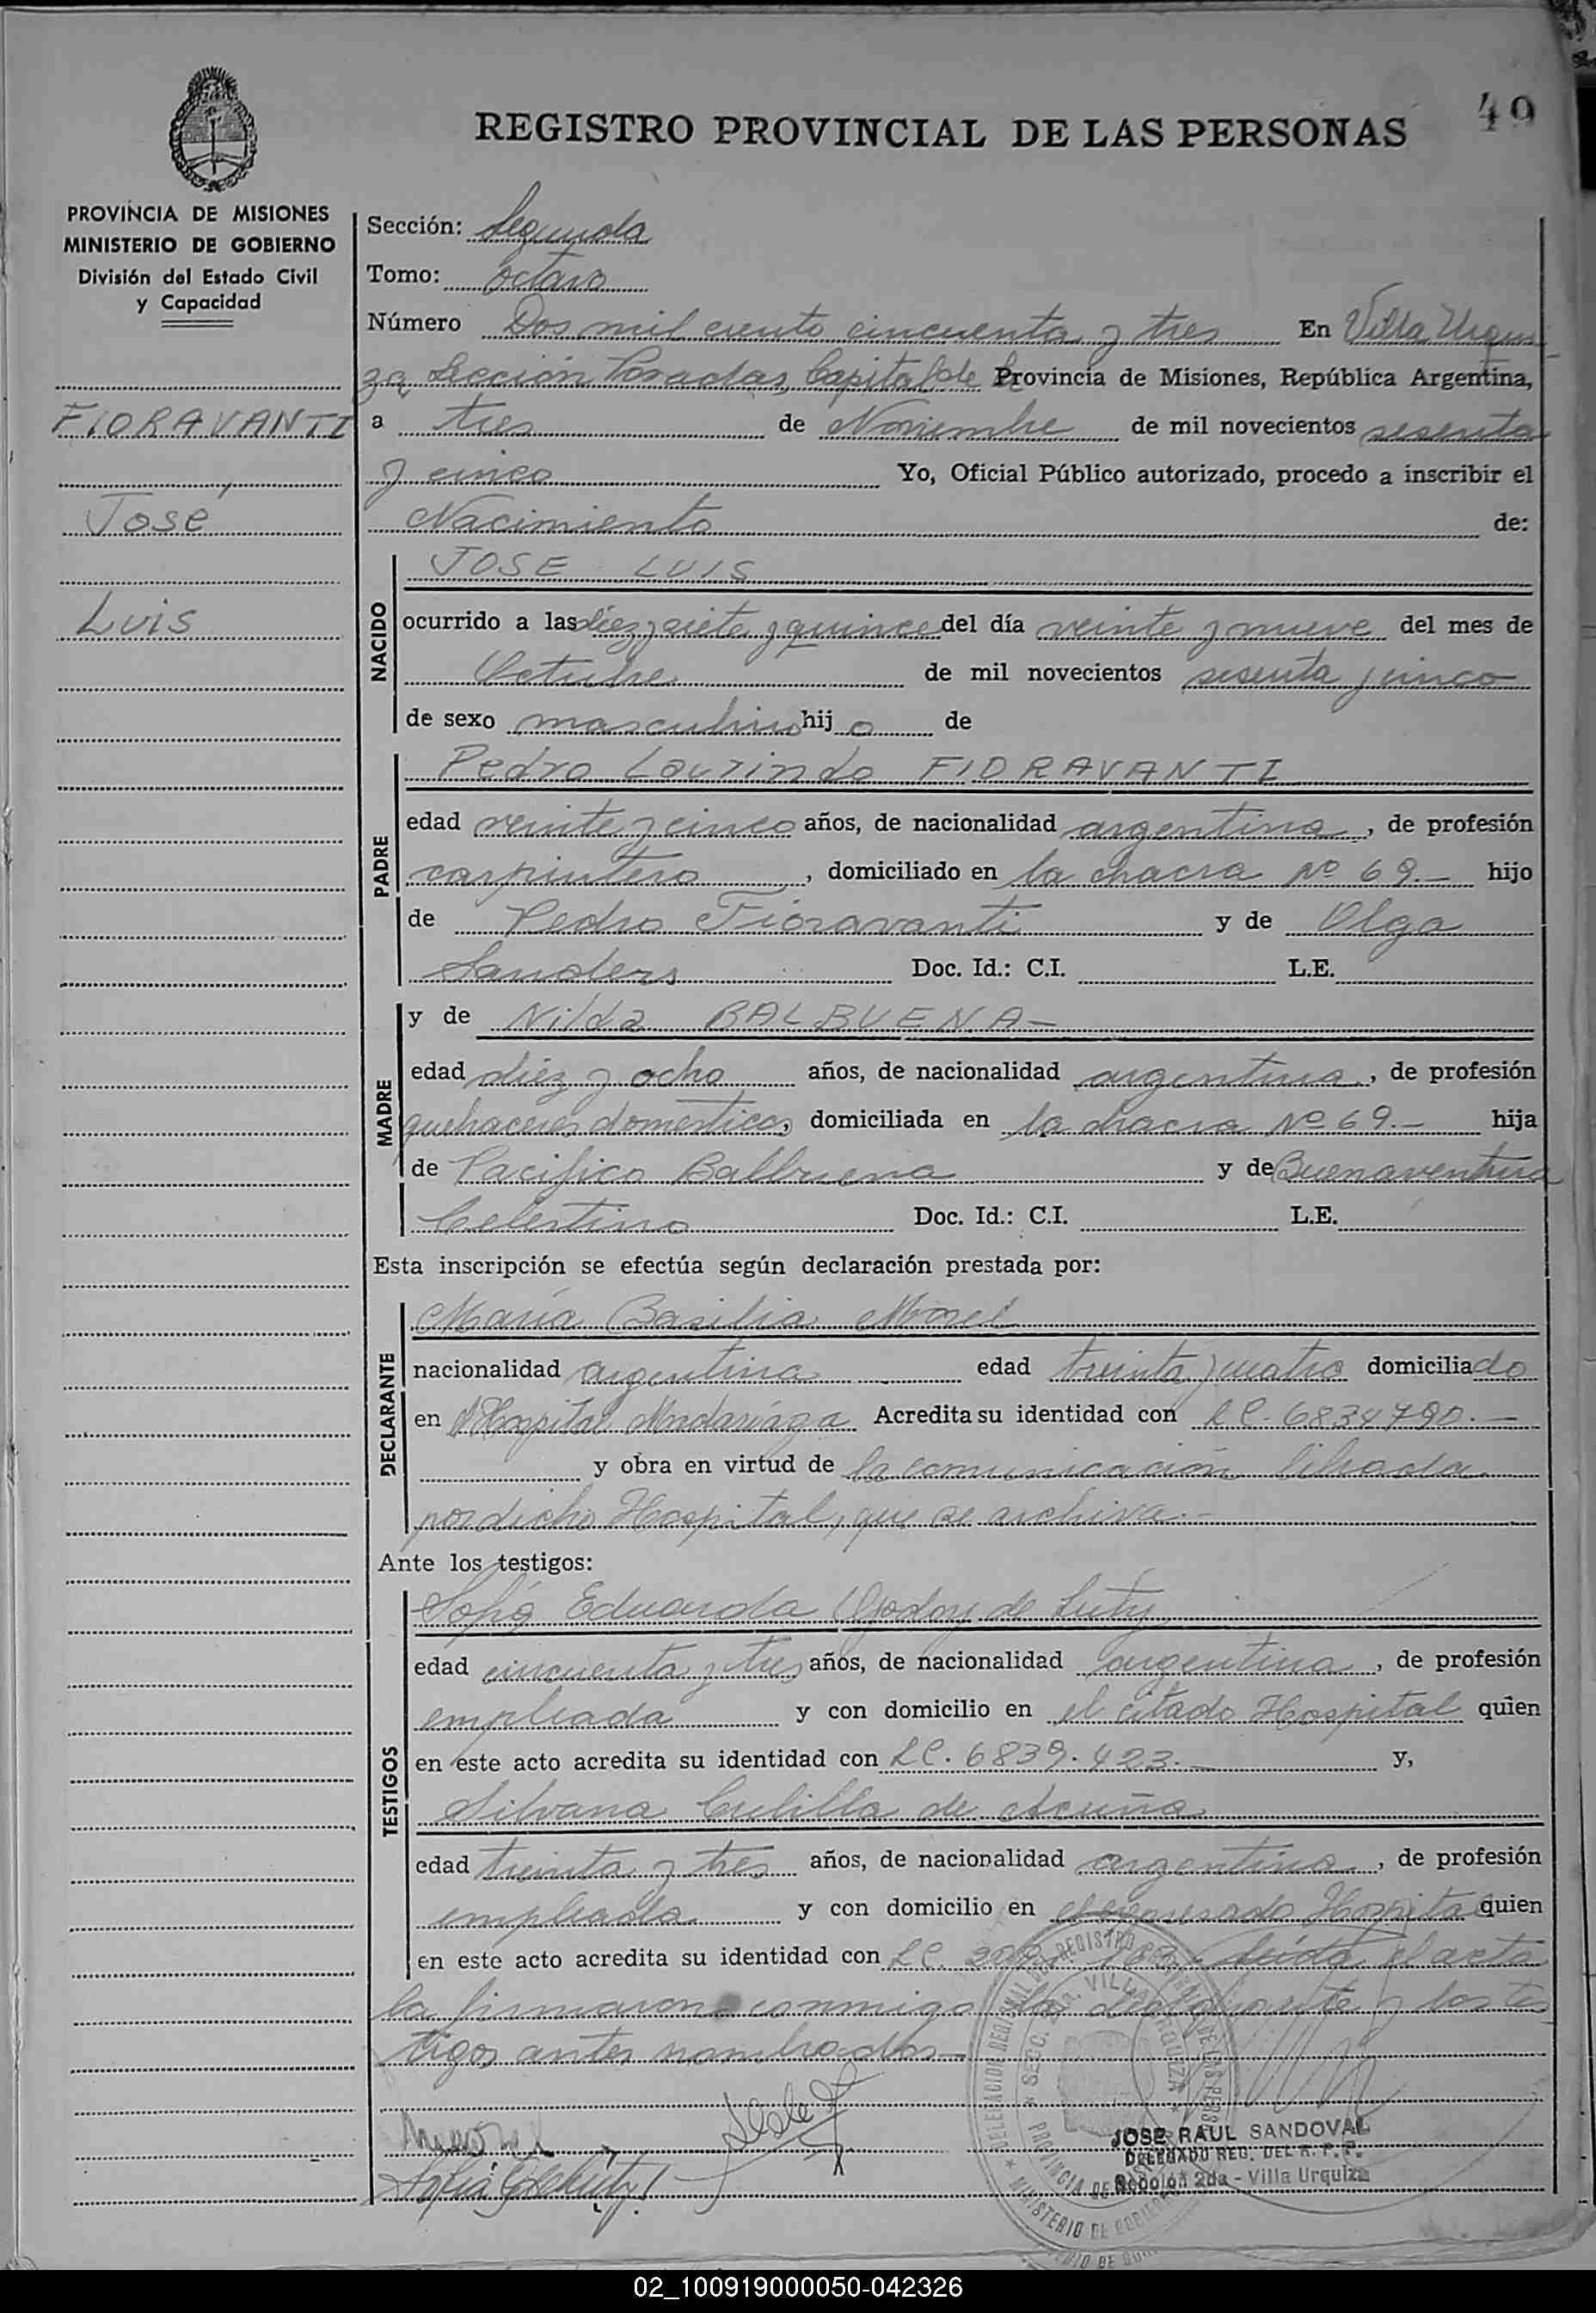 49
REGISTRO PROVINCIAL DE LAS PERSONAS
PROVINCIA DE MISIONES
MINISTERIO DE GOBIERNO
División del Estado Civil
y Capacidad
FIORAVANTI
José
Luis
Sección: Segunda
Tomo: octavo
Número Dos mil ciento cincuenta y tres En Villa Urqui
za Sección Posadas, Capital de la Provincia de Misiones, República Argentina,
a tres de Noviembre de mil novecientos sesenta
y cinco Yo, Oficial Público autorizado, procedo a inscribir el
Nacimiento de:
NACIDO
JOSE LUIS
ocurrido a las diez y siete y quince del día veinte y nueve del mes de
Octubre de mil novecientos sesenta y cinco
de sexo masculino hij o de
PADRE
Pedro Lourindo FIORAVANTI
edad veinte y cinco años, de nacionalidad argentina, de profesión
carpintero, domiciliado en la chacra Nº 69.- hijo
de Pedro Fioravanti y de Olga
Sanders Doc. Id.: C.I. L.E.
MADRE
y de Nilda BALBUENA-
edad diez y ocho años, de nacionalidad argentina, de profesión
quehaceres domesticos, domiciliada en la chacra Nº 69.- hija
de Pacifico Balbuena y de Buenaventura
Celestino Doc. Id.: C.I. L.E.
Esta inscripción se efectúa según declaración prestada por:
DECLARANTE
María Basilia Morel
nacionalidad argentina edad treinta y cuatro domiciliado
en Hospital Madariaga Acredita su identidad con L.C. 6834790.-
y obra en virtud de la comunicación librada
por dicho Hospital, que se archiva.-
Ante los testigos:
TESTIGOS
Sofía Eduarda Godoy de Luty
edad cincuenta y tres años, de nacionalidad argentina, de profesión
empleada y con domicilio en el citado Hospital quien
en este acto acredita su identidad con L.C. 6839.423.- y,
Silvana Cubilla de Acuña
edad treinta y tres años, de nacionalidad argentina, de profesión
empleada y con domicilio en el Hospital quien
en este acto acredita su identidad con L.C. Leída el acta
la firmaron conmigo la declarante y los tes
tigos antes nombrados-
JOSE RAUL SANDOVAL
DELEGADO REG. DEL R. P. P.
Sección 2da - Villa Urquiza
02_100919000050-042326